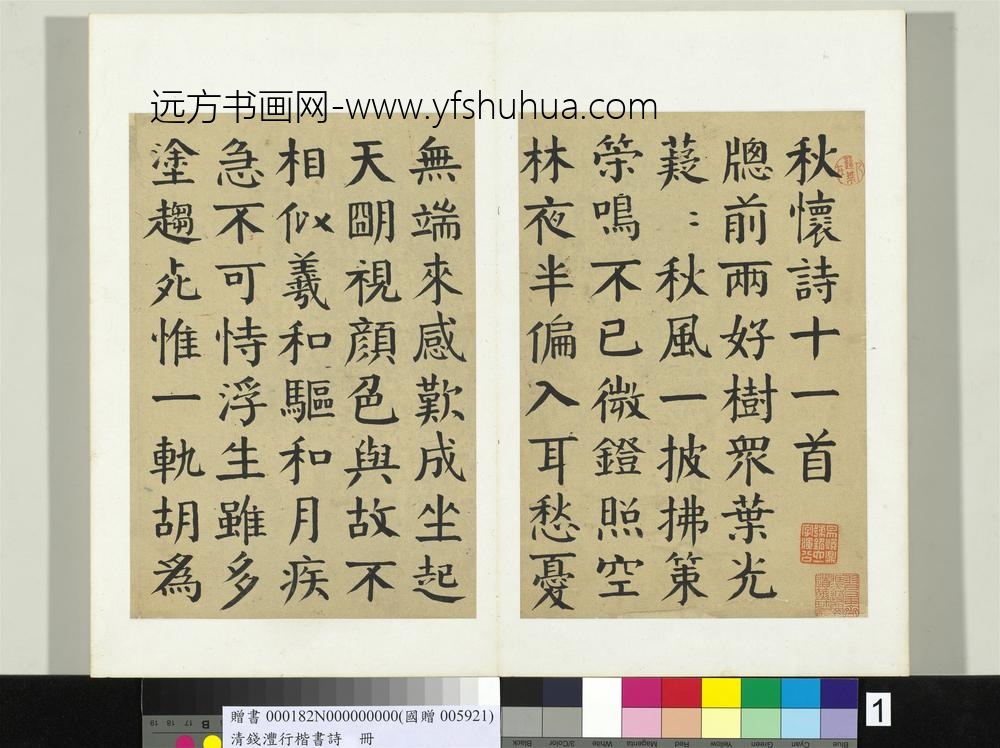 远方书画网-www.yfshuhua.com
秋懷詩十一首
牕前兩好樹眾葉光
薿〻秋風一披拂策
策鳴不已微鐙照空
林夜半偏入耳愁憂
無端來感歎成坐起
天朙視顔色與故不
相似羲和驅和月疾
急不可恃浮生雖多
塗趨死惟一軌胡爲
1
贈書 000182N000000000(國贈 005921)
清錢灃行楷書詩 冊
19 18 17 B
Black 3/Color White Magenta Red Yellow Green Cyan Blue